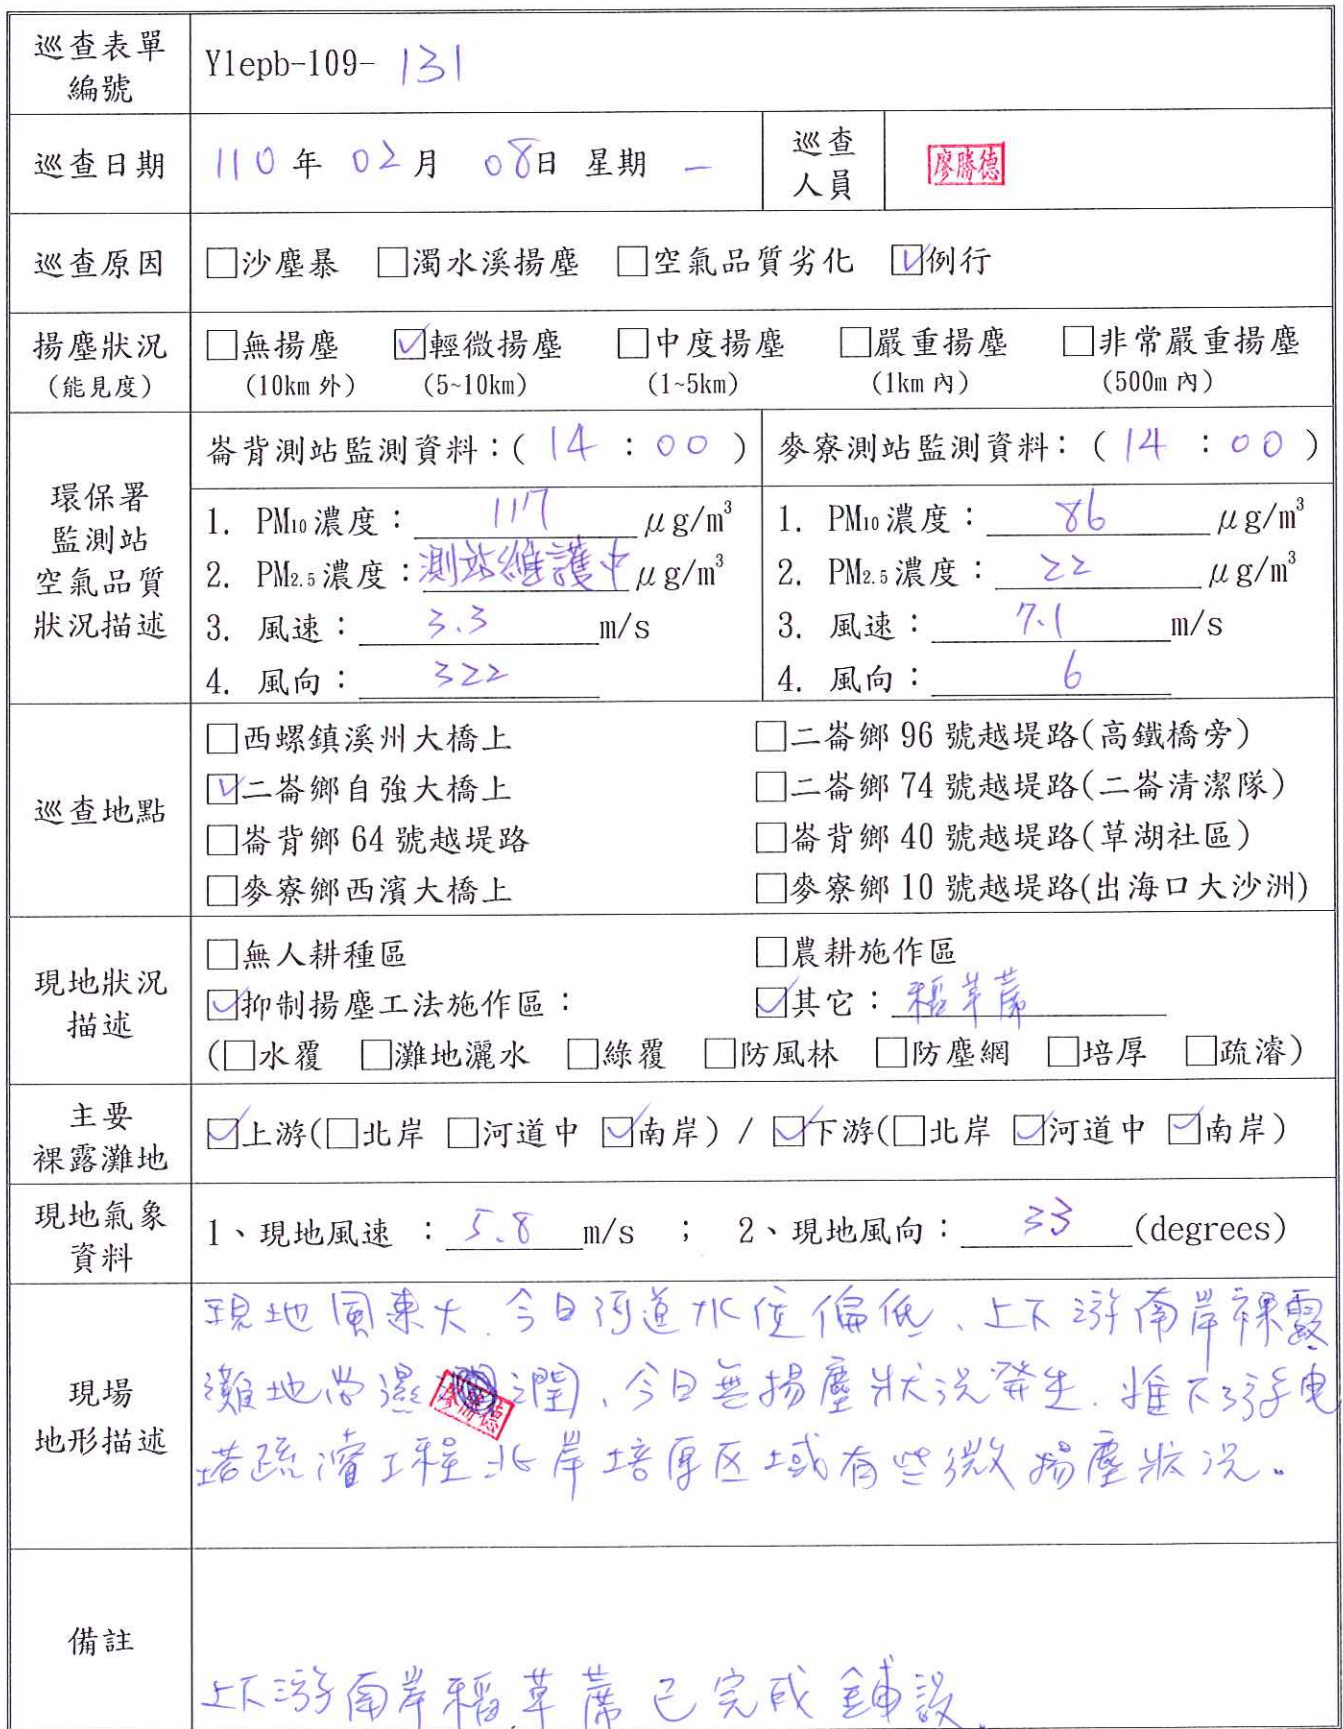 巡查表單
編號
Ylepb-109- 131
巡查日期
110 年 02 月 08 日 星期 一
巡查
人員
廖勝德
巡查原因
□沙塵暴 □濁水溪揚塵 □空氣品質劣化 ☑例行
揚塵狀況
(能見度)
□無揚塵 ☑輕微揚塵 □中度揚塵 □嚴重揚塵 □非常嚴重揚塵
(10km 外) (5~10km) (1~5km) (1km 內) (500m 內)
環保署
監測站
空氣品質
狀況描述
崙背測站監測資料：( 14 ： 00 )
1. PM10 濃度： 117 μg/m³
2. PM2.5 濃度：測站維護中 μg/m³
3. 風速： 3.3 m/s
4. 風向： 322
麥寮測站監測資料： ( 14 ： 00 )
1. PM10 濃度： 86 μg/m³
2. PM2.5 濃度： 22 μg/m³
3. 風速： 7.1 m/s
4. 風向： 6
巡查地點
□西螺鎮溪州大橋上 □二崙鄉 96 號越堤路(高鐵橋旁)
☑二崙鄉自強大橋上 □二崙鄉 74 號越堤路(二崙清潔隊)
□崙背鄉 64 號越堤路 □崙背鄉 40 號越堤路(草湖社區)
□麥寮鄉西濱大橋上 □麥寮鄉 10 號越堤路(出海口大沙洲)
現地狀況
描述
□無人耕種區 □農耕施作區
☑抑制揚塵工法施作區： ☑其它：稻草蓆
(□水覆 □灘地灑水 □綠覆 □防風林 □防塵網 □培厚 □疏濬)
主要
裸露灘地
☑上游(□北岸 □河道中 ☑南岸) / ☑下游(□北岸 ☑河道中 ☑南岸)
現地氣象
資料
1、現地風速 ： 5.8 m/s ； 2、現地風向： 33 (degrees)
現場
地形描述
現地風速大、今日河道水位偏低、上下游南岸裸露
灘地尚濕潤、今日無揚塵狀況發生、惟下游电
塔疏濬工程北岸培厚区域有些微揚塵狀況。
廖勝德
備註
上下游南岸稻草蓆已完成鋪設。